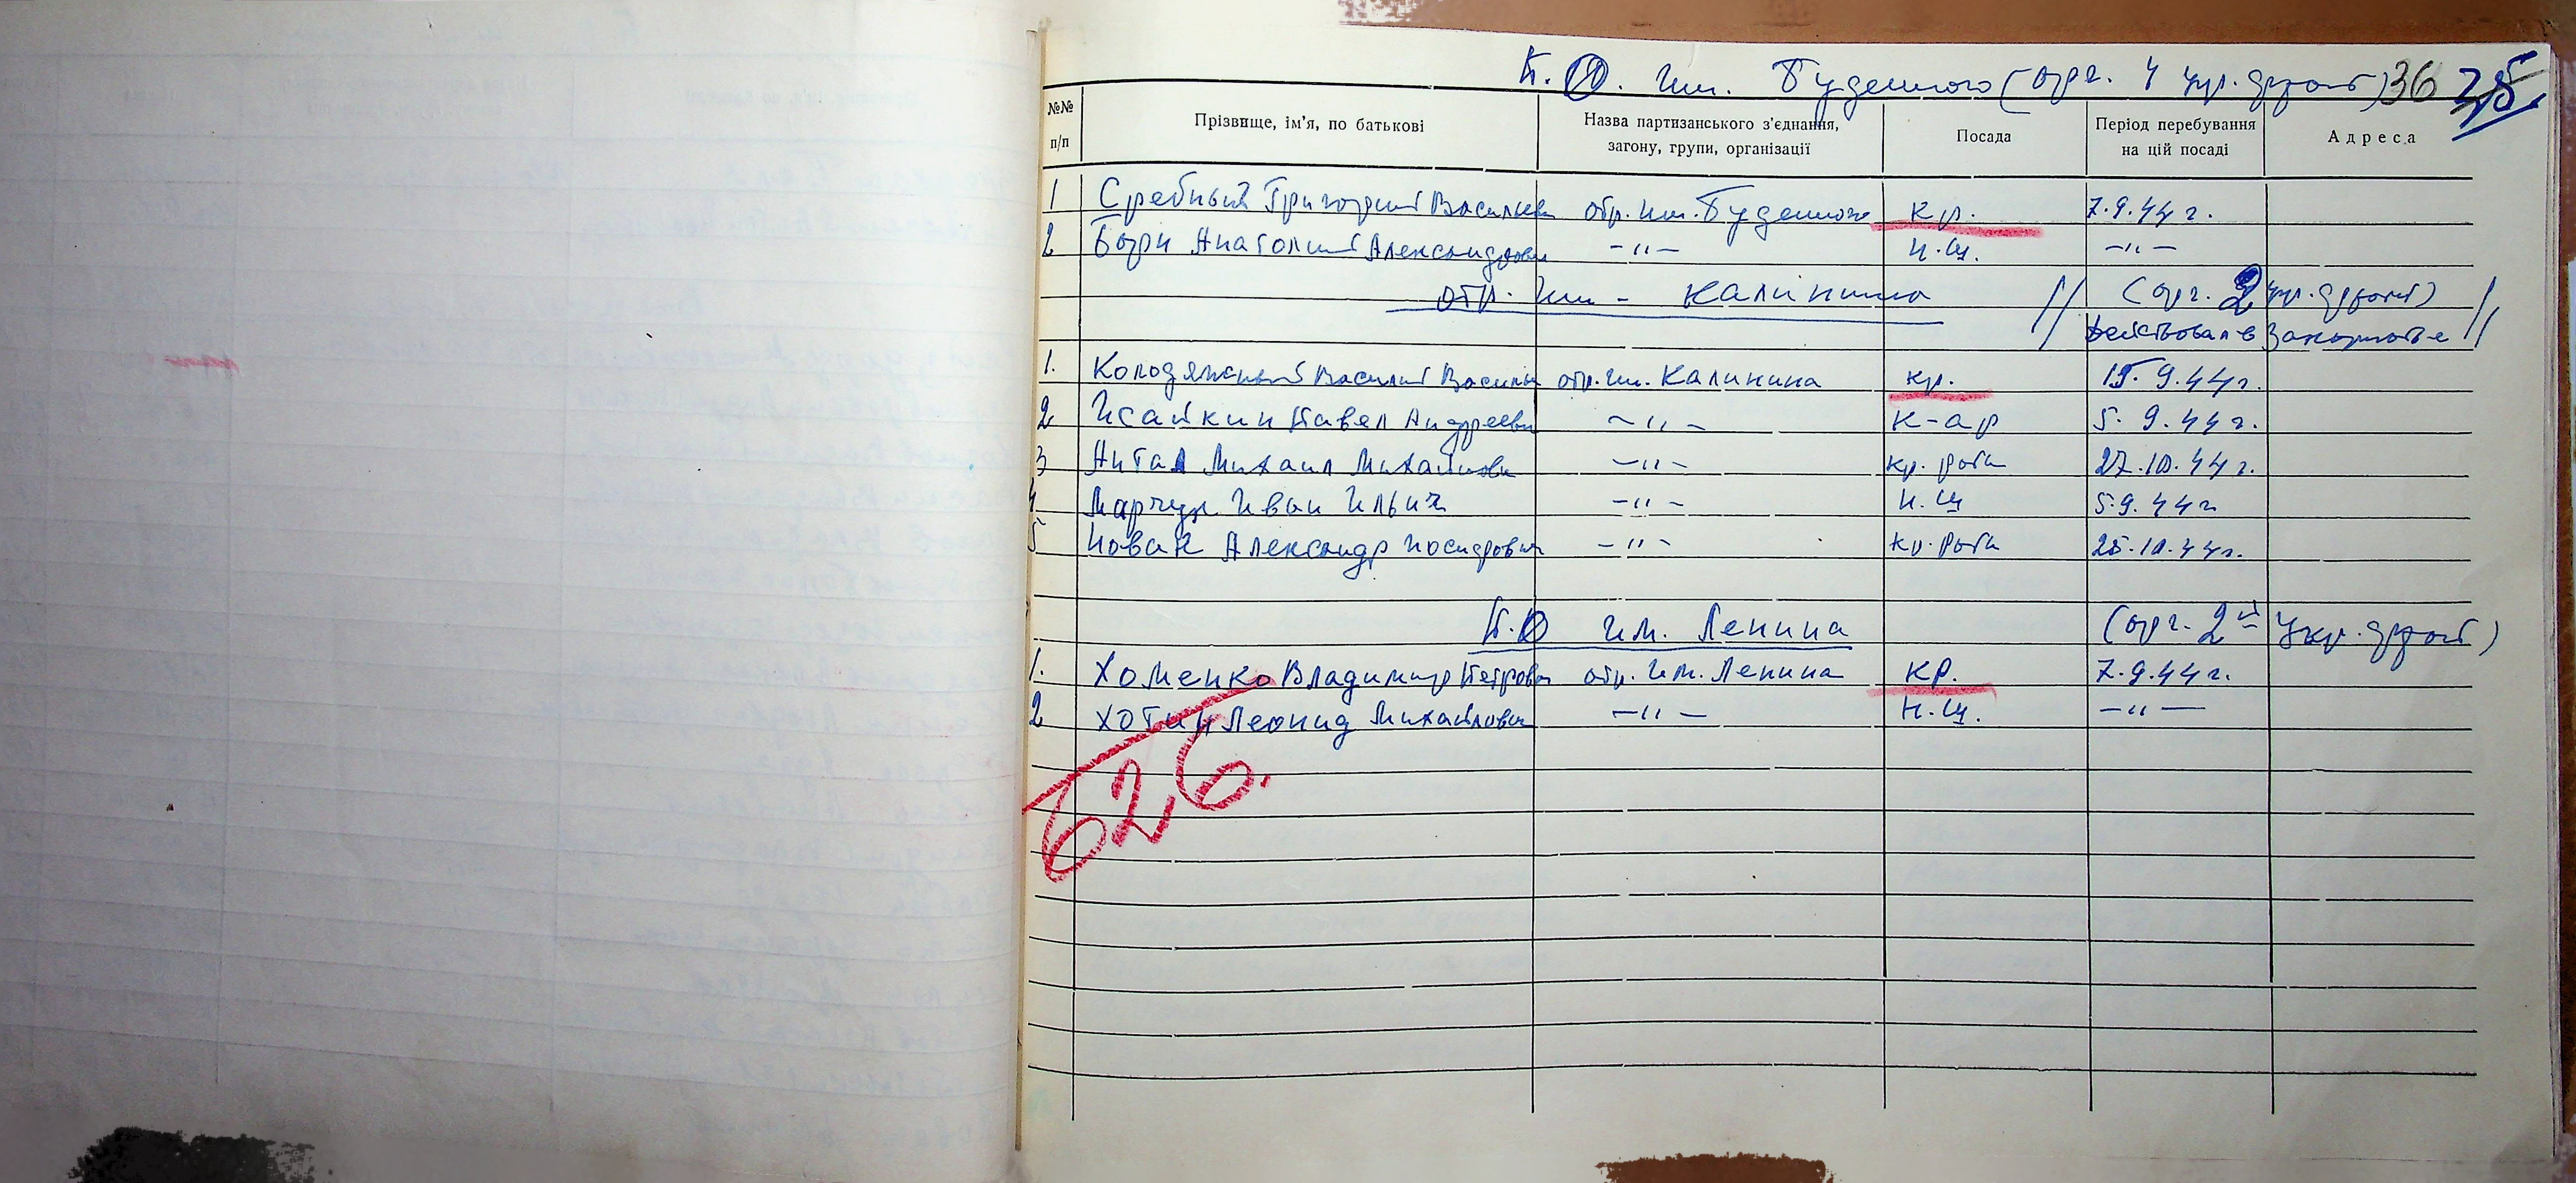 П.О. им. Буденного (орг. 4 укр. фронт) 36 35
№№ п/п
Прізвище, ім'я, по батькові
Назва партизанського з'єднання, загону, групи, організації
Посада
Період перебування на цій посаді
Адреса
1 Сребный Григорий Василье отр. им. Буденного кр. 7.9.44 г.
2 Анатолий Александрови -"- н.ш. -"-
отр. им. Калинина // (орг. 2 укр. фронт)
действовал в Закарпатье //
1. Колодяжный Василий Василье отр. им. Калинина кр. 15.9.44 г.
2 Исайкин Павел Андрееви -"- к-ар 5.9.44 г.
3 Антал Михаил Михайлови -"- кр. роти 27.10.44 г.
4 Марчук Иван Ильич -"- н.ш 5.9.44 г
5 Новак Александр Иосифович -"- кр. роти 25.10.44 г.
П.О им. Ленина (орг. 2й Укр. фронт)
1. Хоменко Владимир Петрови отр. им. Ленина кр. 7.9.44 г.
2 Хотин Леонид Михайлови -"- н.ш. -"-
626.